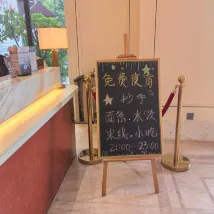 免费夜宵
抄手
面条、水饺
米线、小吃
21:00-23:00